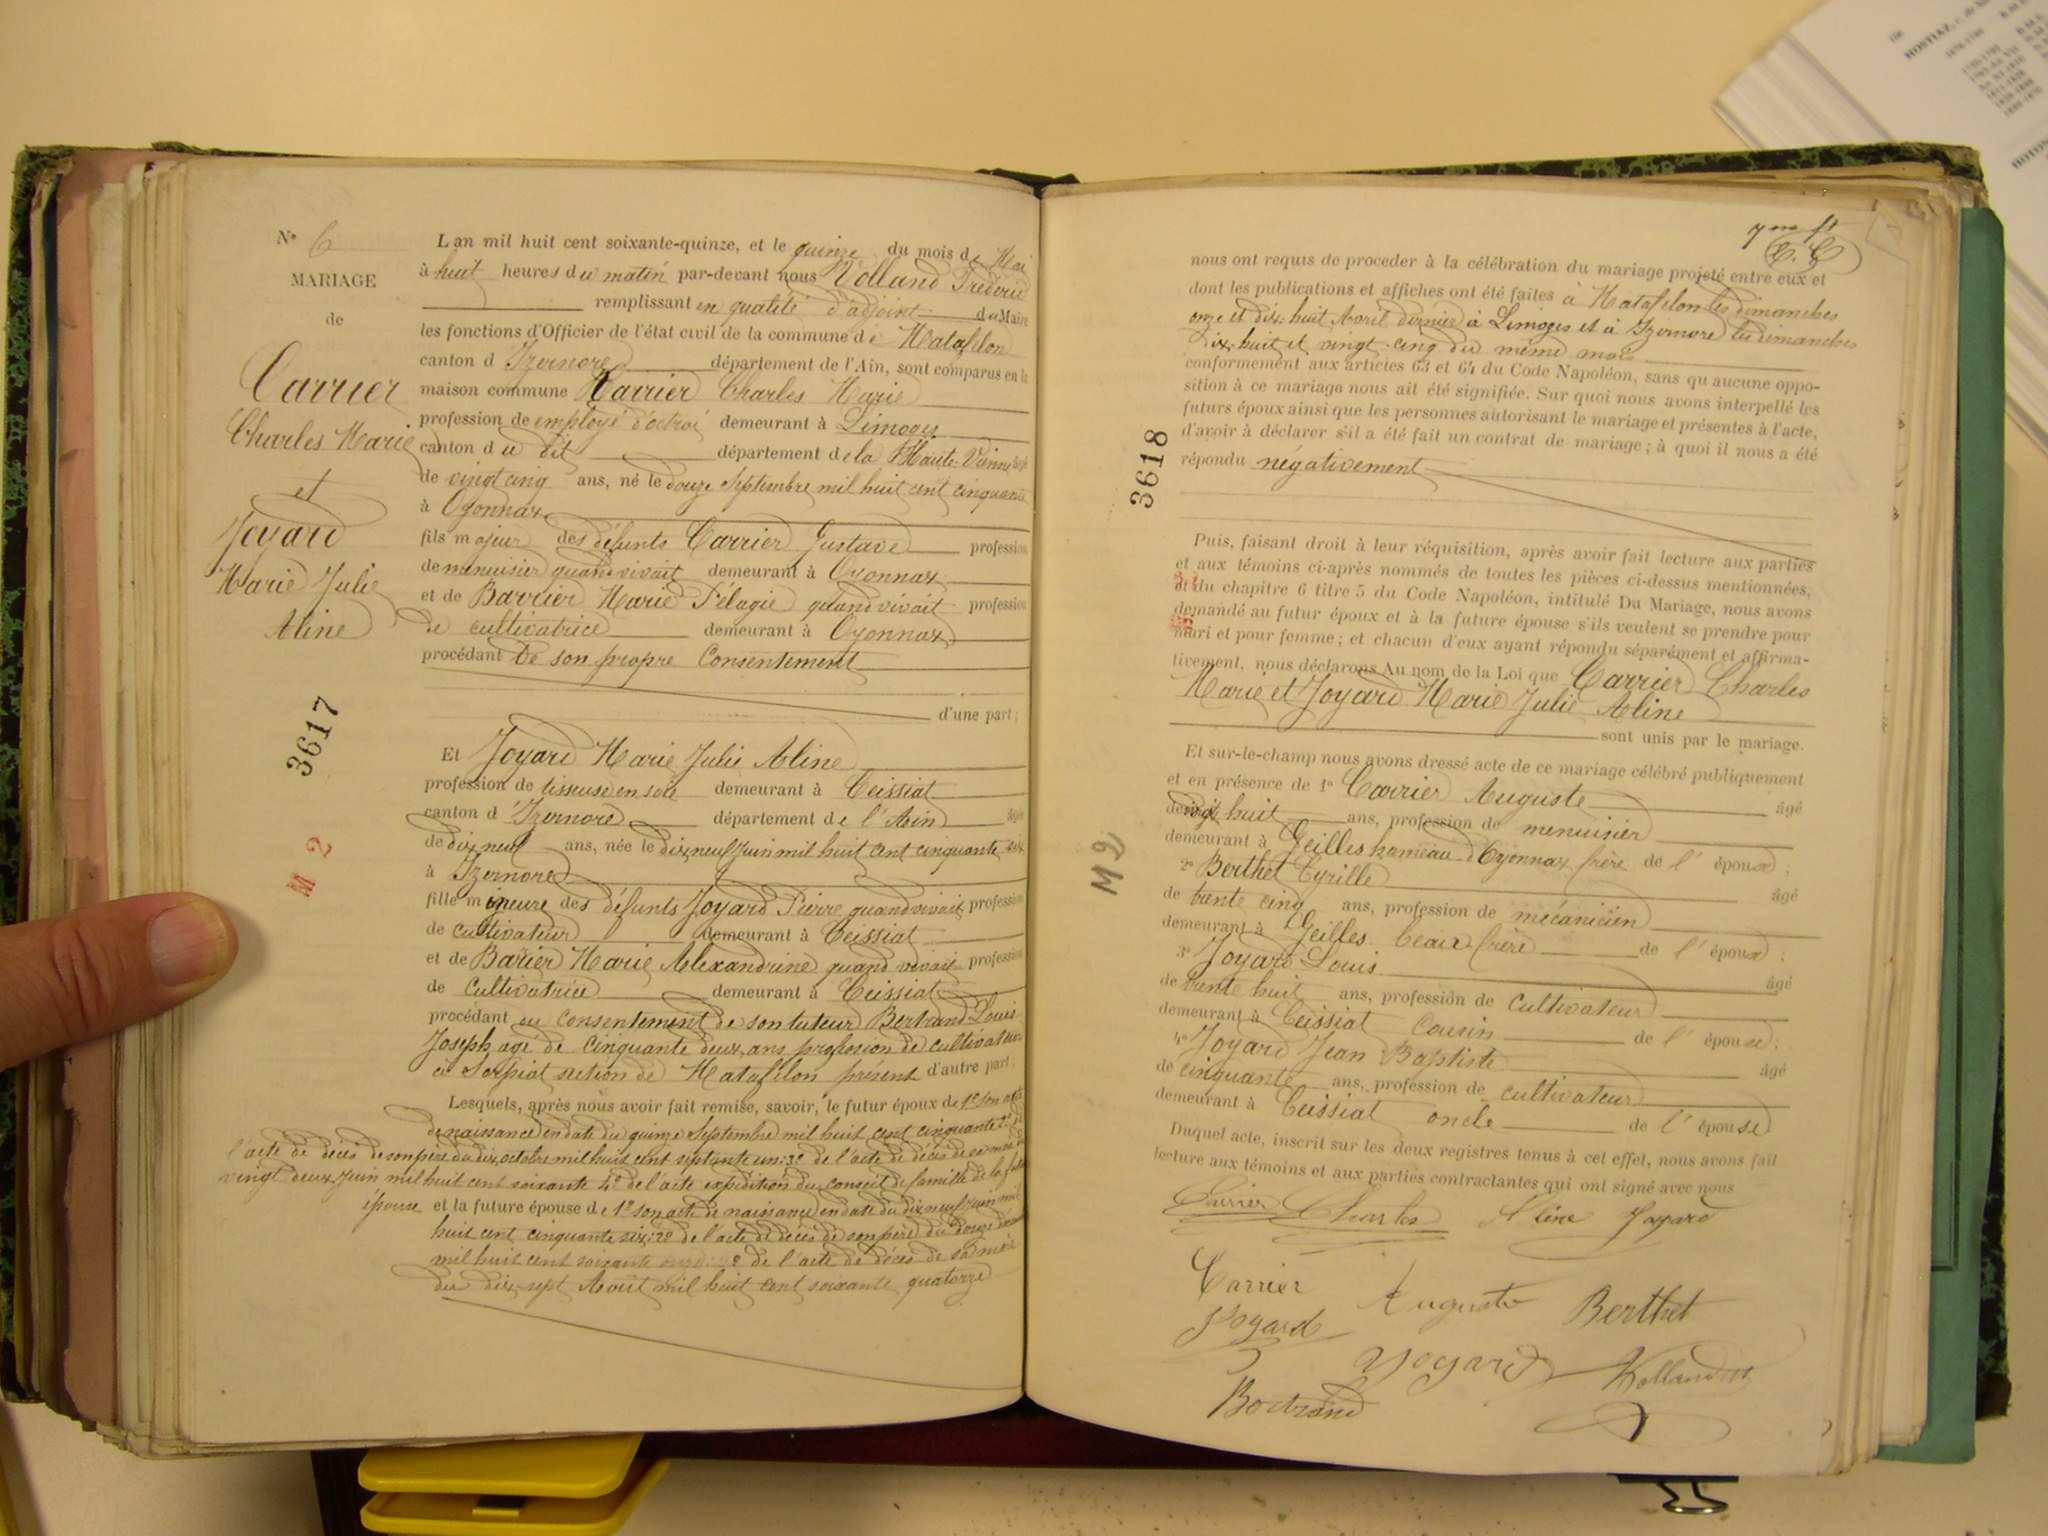 N° 6
MARIAGE
de
Carrier
Charles Marie
et
Joyard
Marie Julie
Aline
3617
M 2
L an mil huit cent soixante-quinze, et le quinze du mois de Mai
à huit heures du matin par-devant nous Volland Frédéric
remplissant en qualité d'adjoint du Maire
les fonctions d'Officier de l'état civil de la commune de Matafelon
canton d'Izernore département de l'Ain, sont comparus en la
maison commune Carrier Charles Marie
profession de employé d'octroi demeurant à Limoges
canton du dit département de la Haute-Vienne âgé
de vingt cinq ans, né le douze Septembre mil huit cent cinquante
à Oyonnax
fils majeur des défunts Carrier Gustave profession
de menuisier quand vivait demeurant à Oyonnax
et de Barrier Marie Pélagie quand vivait profession
de cultivatrice demeurant à Oyonnax
procédant de son propre Consentement
d'une part;
Et Joyard Marie Julie Aline
profession de tisseuse en soie demeurant à Ceissiat
canton d'Izernore département de l'Ain âgée
de dix neuf ans, née le dix neuf Juin mil huit cent cinquante six
à Izernore
fille mineure des défunts Joyard Pierre quand vivait profession
de cultivateur demeurant à Ceissiat
et de Barier Marie Alexandrine quand vivait profession
de cultivatrice demeurant à Ceissiat
procédant au consentement de son tuteur Bertrand Louis
Joseph agé de cinquante deux ans profession de cultivateur
à Sorpiat section de Matafelon présent d'autre part;
Lesquels, après nous avoir fait remise, savoir, le futur époux de 1° son acte
de naissance en date du quinze Septembre mil huit cent cinquante 2°
l'acte de décès de son père du dix octobre mil huit cent septante un: 3° de l'acte de décès de sa mère du
vingt deux Juin mil huit cent soixante 4° de l'acte expédition du conseil de famille de la future
épouse et la future épouse de 1° son acte de naissance en date du dix neuf Juin mil
huit cent cinquante six: 2° de l'acte de décès de son père du douze
mil huit cent soixante de l'acte de décès de sa mère
du dix sept Août mil huit cent soixante quatorze
7me ft
C. C
nous ont requis de proceder à la célébration du mariage projeté entre eux et
dont les publications et affiches ont été faites à Matafelon les dimanches
onze et dix-huit Avril dernier à Limoges et à Izernore les dimanches
dix-huit et vingt-cinq du même mois
conformement aux articles 63 et 64 du Code Napoléon, sans qu aucune oppo-
sition à ce mariage nous ait été signifiée. Sur quoi nous avons interpellé les
futurs époux ainsi que les personnes autorisant le mariage et présentes à l'acte,
d'avoir à déclarer s'il a été fait un contrat de mariage; à quoi il nous a été
répondu négativement
3618
Puis, faisant droit à leur réquisition, après avoir fait lecture aux parties
et aux témoins ci-après nommés de toutes les pièces ci-dessus mentionnées,
et du chapitre 6 titre 5 du Code Napoléon, intitulé Du Mariage, nous avons
demandé au futur époux et à la future épouse s'ils veulent se prendre pour
mari et pour femme; et chacun d'eux ayant répondu séparément et affirma-
tivement, nous déclarons Au nom de la Loi que Carrier Charles
Marie et Joyard Marie Julie Aline
sont unis par le mariage.
Et sur-le-champ nous avons dressé acte de ce mariage célébré publiquement
et en présence de 1° Carrier Auguste âgé
de vingt huit ans, profession de menuisier
demeurant à Geilles hameau d'Oyonnax frère de l'époux;
2° Berthet Cyrille âgé
de trente cinq ans, profession de mécanicien
demeurant à Geilles beau-frère de l'époux;
3° Joyard Louis âgé
de trente huit ans, profession de cultivateur
demeurant à Ceissiat Cousin de l'épouse;
4° Joyard Jean Baptiste âgé
de cinquante ans, profession de cultivateur
demeurant à Ceissiat oncle de l'épouse
M 2
Duquel acte, inscrit sur les deux registres tenus à cet effet, nous avons fait
lecture aux témoins et aux parties contractantes qui ont signé avec nous
Carrier Charles Aline Joyard
Carrier Auguste Berthet
Joyard
Yoyard Volland
Bertrand
HOSTIAZ